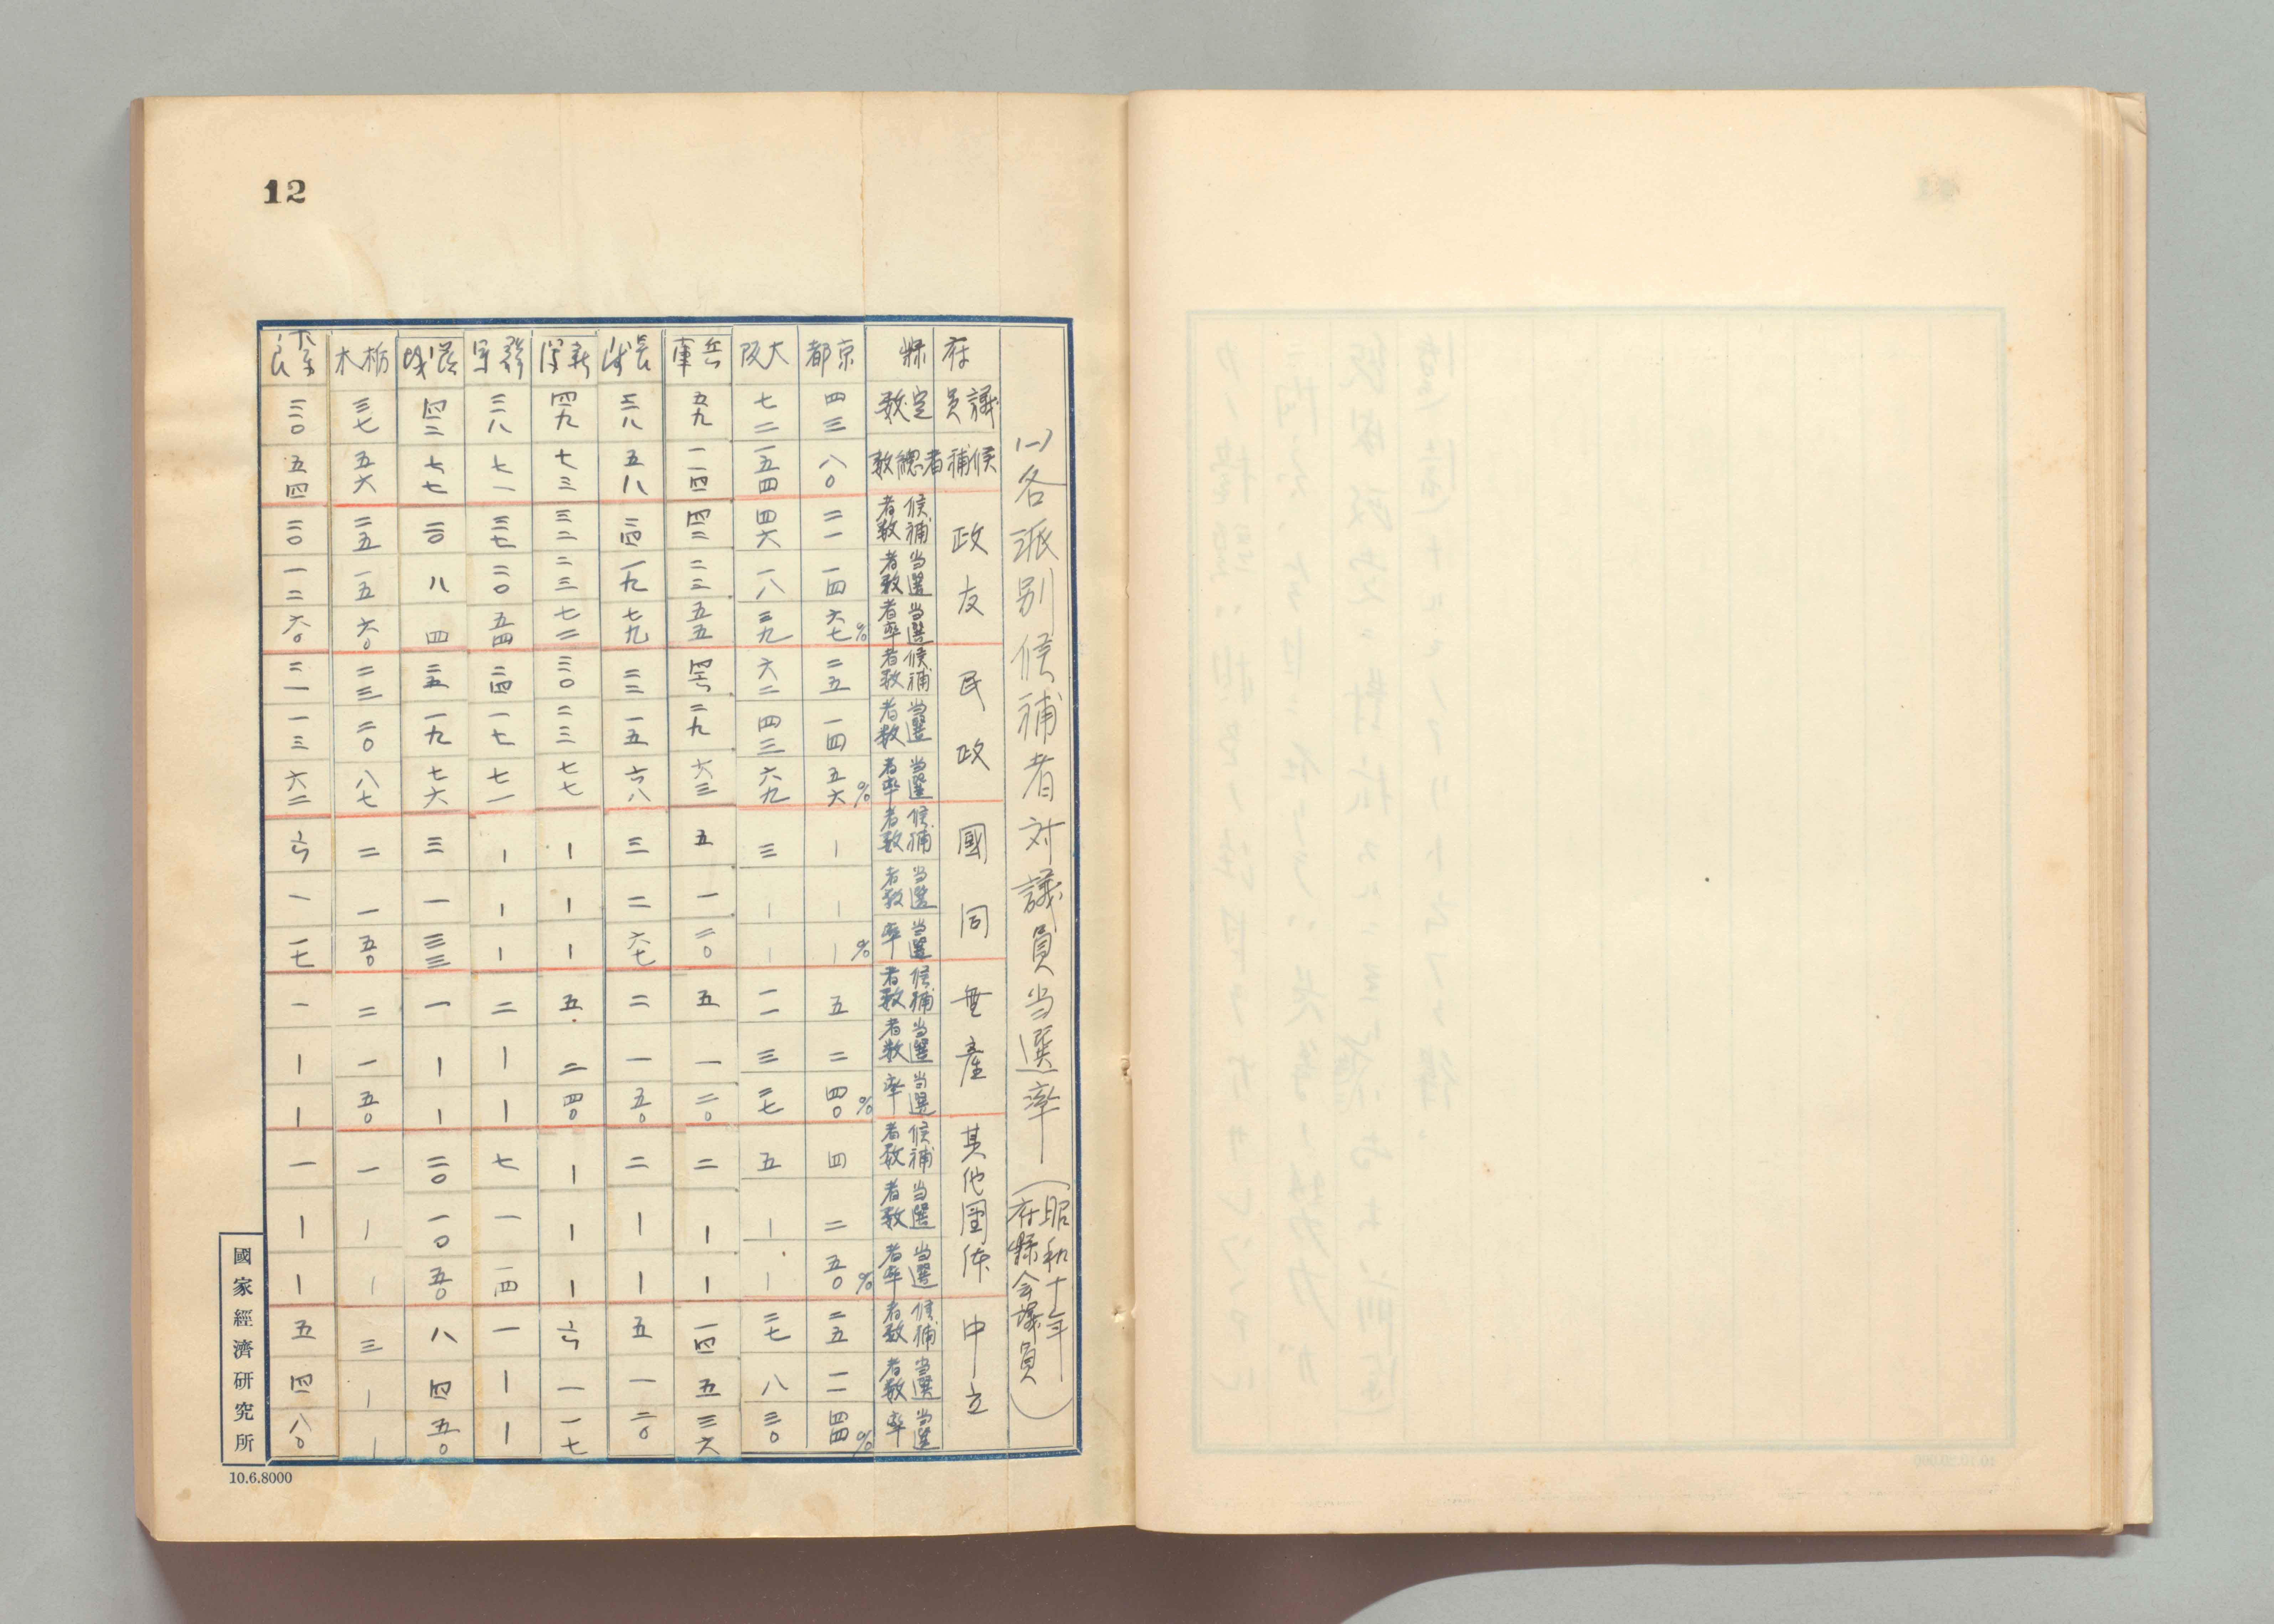 (一)各派別候補者対議員当選率(昭和十年府縣会議員)
府縣 議員定数 候補者總数 政友 候補者数 当選者数 当選者率 民政 候補者数 当選者数 当選者率 國同 候補者数 当選者数 当選率 無產 候補者数 当選者数 当選率 其他團体 候補者数 当選者数 当選者率 中立 候補者数 当選者数 当選率
京都 四三 八〇 二一 一四 六七% 二五 一四 五六% ー ー ー% 五 二 四〇% 四 二 五〇% 二五 一一 四四%
大阪 七二 一五四 四六 一八 三九 六二 四三 六九 三 ー ー 一一 三 二七 五 ー ー 二七 八 三〇
兵庫 五九 一一四 四二 二三 五五 四六 二九 六三 五 一 二〇 五 一 二〇 二 ー ー 一四 五 三六
長崎 三八 五八 二四 一九 七九 二二 一五 六八 三 二 六七 二 一 五〇 二 ー ー 五 一 二〇
新潟 四九 七三 三二 二三 七二 三〇 二三 七七 ー ー ー 五 二 四〇 ー ー ー 六 一 一七
群馬 三八 七一 三七 二〇 五四 二四 一七 七一 ー ー ー 二 ー ー 七 一 一四 一 ー ー
茨城 四二 七七 二〇 八 四 二五 一九 七六 三 一 三三 一 ー ー 二〇 一〇 五〇 八 四 五〇
栃木 三七 五六 二五 一五 六〇 二三 二〇 八七 二 一 五〇 二 一 五〇 一 ー ー 三 ー ー
奈良 三〇 五四 二〇 一二 六〇 二一 一三 六二 六 一 一七 一 ー ー 一 ー ー 五 四 八〇
12
國家經濟研究所
10.6.8000